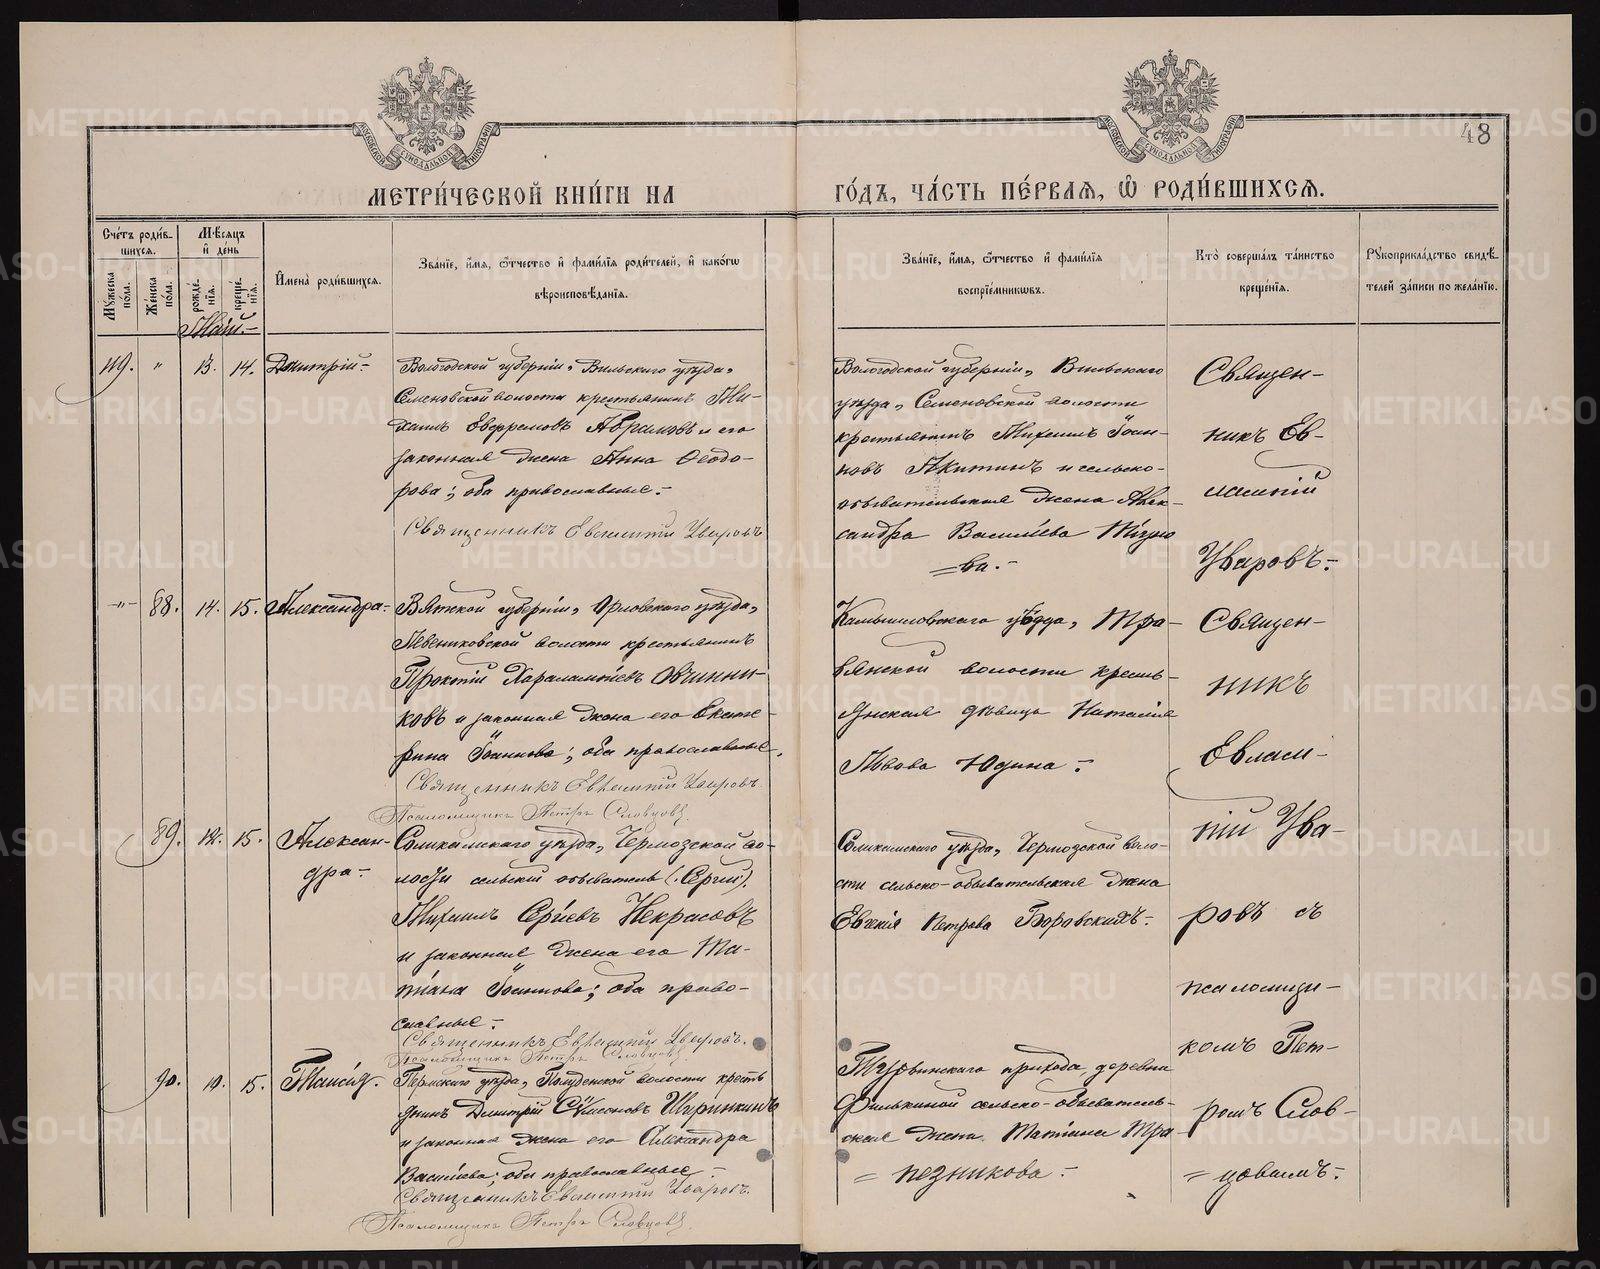 48
МЕТРИ́ЧЕСКОЙ КНИ́ГИ НА ГО́ДЪ, ЧА́СТЬ ПЕ́РВАѦ, Ѽ РОДИ́ВШИХСѦ.
Сче́тъ роди́в-
шихсѧ.
Мѣ́сѧцъ
и҆ де́нь
Мꙋ́жеска по́ла.
Же́нска по́ла.
рожде́-
нїѧ.
креще́-
нїѧ.
И҆мена̀ роди́вшихсѧ.
Зва́нїе, и҆́мѧ, ѻ҆́тчество и҆ фами́лїѧ роди́телей, и҆ како́гѡ
вѣроисповѣ́данїѧ.
Зва́нїе, и҆́мѧ, ѻ҆́тчество и҆ фами́лїѧ
воспрїе́мникѡвъ.
Кто̀ соверша́лъ та́инство
креще́нїѧ.
Рꙋкоприкла́дство свидѣ́-
телей за́писи по жела́нїю.
Май.
119. " 13. 14. Димитрій
Вологодской губерніи, Вельскаго уѣзда,
Семеновской волости крестьянинъ Ми-
хаилъ Евфремовъ Абрамовъ и его
законная жена Анна Ѳеодо-
рова; оба православные.
Священникъ Евлампій Уваровъ
Вологодской губерніи, Вельскаго
уѣзда, Семеновской волости
крестьянинъ Михаилъ Іоан-
новъ Никитинъ и сельско-
обывательская жена Алек-
сандра Васильева
ва.
Священ-
никъ Ев-
лампій
Уваровъ.
" 88. 14. 15. Александра
Вятской губерніи, Орловскаго уѣзда,
волости крестьянинъ
Прокопій Харалампіевъ Овчинни-
ковъ и законная жена его Екате-
рина Іоаннова; оба православные.
Священникъ Евлампій Уваровъ.
Псаломщикъ Петръ Словцовъ.
Камышловскаго уѣзда, Тра-
вянской волости кресть-
янская дѣвица Наталія
Львова Юдина.
Священ-
никъ
Евламп-
ій Ува-
ровъ съ
псаломщи-
комъ Пет-
ромъ Слов-
цовымъ.
89. 12. 15. Алексан-
дра
Соликамскаго уѣзда, Чермозской во-
лости сельскій обыватель (Сергій)
Михаилъ Сергіевъ Некрасовъ
и законная жена его Та-
тіана Іоаннова; оба право-
славные.
Священникъ Евлампій Уваровъ.
Псаломщикъ Петръ Словцовъ.
Соликамскаго уѣзда, Чермозской воло-
сти сельско-обывательская жена
Евгенія Петрова Боровскихъ.
90. 10. 15. Таисія.
Пермскаго уѣзда, Полуденской волости кресть
янинъ Димитрій Сѵмеоновъ Ширинкинъ
и законная жена его Александра
Васильева; оба православные
Священникъ Евлампій Уваровъ.
Псаломщикъ Петръ Словцовъ.
Турьинскаго прихода, деревни
Филькиной сельско-обыватель-
ская жена Татіана Тра-
пезникова.
METRIKI.GASO-URAL.RU